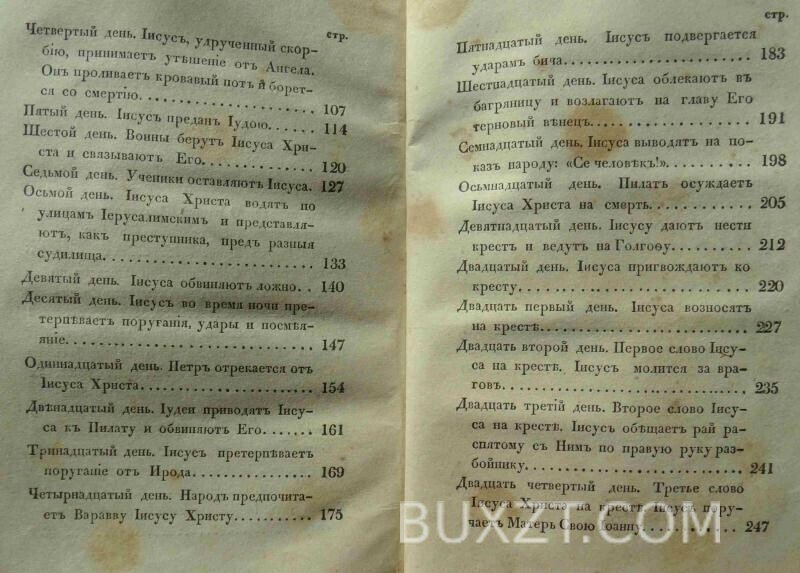 стр.
Четвертый день. Іисусъ, удрученный скор-
бію, принимаетъ утѣшеніе отъ Ангела.
Онъ проливаетъ кровавый потъ и борет-
ся со смертію. 107
Пятый день. Іисусъ преданъ Іудою. 114
Шестой день. Воины берутъ Іисуса Хри-
ста и связываютъ Его. 120
Седьмой день. Ученики оставляютъ Іисуса. 127
Осьмой день. Іисуса Христа водятъ по
улицамъ Іерусалимскимъ и представля-
ютъ, какъ преступника, предъ разныя
судилища. 133
Девятый день. Іисуса обвиняютъ ложно. 140
Десятый день. Іисусъ во время ночи пре-
терпѣваетъ поруганія, удары и посмѣя-
яніе. 147
Одиннадцатый день. Петръ отрекается отъ
Іисуса Христа. 154
Двѣнадцатый день. Іудеи приводятъ Іису-
са къ Пилату и обвиняютъ Его. 161
Тринадцатый день. Іисусъ претерпѣваетъ
поруганіе отъ Ирода. 169
Четырнадцатый день. Народъ предпочита-
етъ Варавву Іисусу Христу. 175
стр.
Пятнадцатый день. Іисусъ подвергается
ударамъ бича. 183
Шестнадцатый день. Іисуса облекаютъ въ
багряницу и возлагаютъ на главу Его
терновый вѣнецъ. 191
Семнадцатый день. Іисуса выводятъ на по-
казъ народу: «Се человѣкъ!». 198
Осьмнадцатый день. Пилатъ осуждаетъ
Іисуса Христа на смерть. 205
Девятнадцатый день. Іисусу даютъ нести
крестъ и ведутъ на Голгоѳу. 212
Двадцатый день. Іисуса пригвождаютъ ко
кресту. 220
Двадцать первый день. Іисуса возносятъ
на крестѣ. 227
Двадцать второй день. Первое слово Іису-
са на крестѣ. Іисусъ молится за вра-
говъ. 235
Двадцать третій день. Второе слово Іису-
са на крестѣ. Іисусъ обѣщаетъ рай рас-
пятому съ Нимъ по правую руку раз-
бойнику. 241
Двадцать четвертый день. Третье слово
Іисуса Христа на крестѣ. Іисусъ пору-
чаетъ Матерь Свою Іоанну. 247
BUXZT.COM